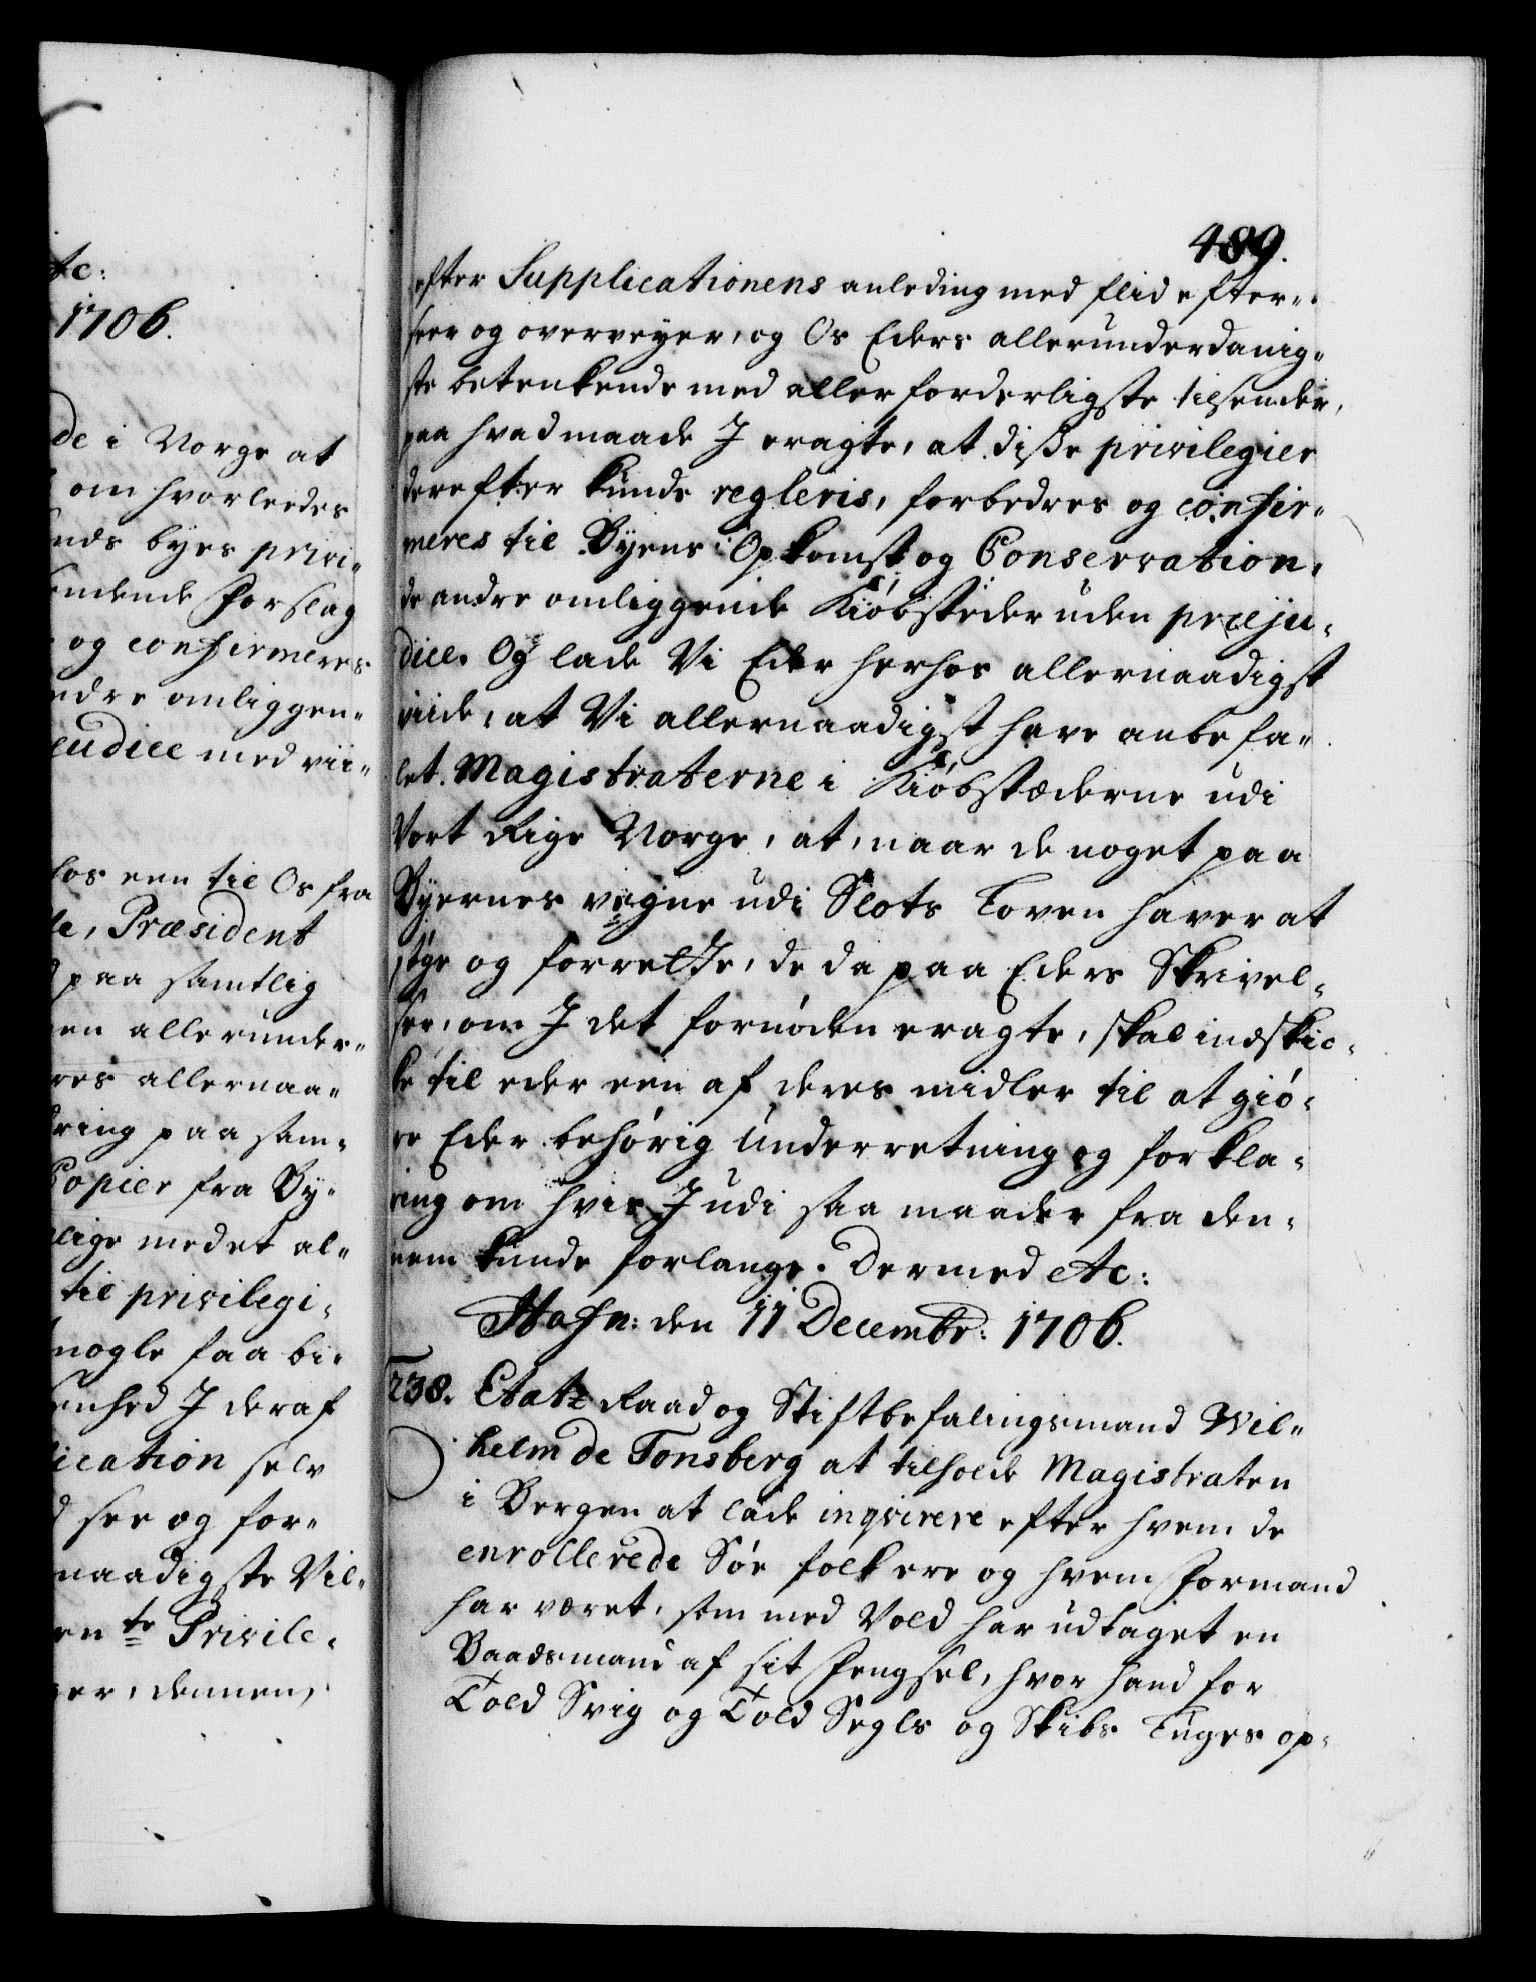 tc:
1706.
de i Norge at
om hvorledes
nds byes privi-
endende Forslag
og confirmeres
ndre omliggen-
eudice med vii-
hos een til Os fra
te, Præsident
paa samtlig
en allerunder-
res allernaa-
dring paa sam-
Copier fra By-
lige med et al-
til privilegi-
nogle faa bi-
enhed I deraf
lication selv
see og for-
naadigste Vil-
en te Privile-
er, dennem,
489.
efter Supplicationens anleding med flid efter-
seer og overveyer, og Os Eders allerunderdanig-
ste betenkende med allerforderligste tilsender,
paa hvad maade I eragte, at disse privilegier
derefter kunde regleris, forbedres og confir-
meres til Byens Opkomst og Conservation,
de andre omliggende Kiøbsteder uden præju-
dice. Og lade Vi Eder herhos allernaadigst
viide, at Vi allernaadigst have anbefa-
let Magistraterne i Kiøbstæderne udi
Vort Rige Norge, at, naar de noget paa
Byernes vegne udi Slots Loven haver at
søge og forrette, de da paa Eders Skrivel-
ser, om I det fornøden eragte, skal indskic-
ke til eder een af deres midler til at giø-
re Eder behørig Underretning og forkla-
ring om hvis I udi saa maader fra den-
nem kunde forlange. Dermed etc:
Hafn: den 11 Decembr: 1706.
238. Etatz Raad og Stiftbefalingsmand Wil-
helm de Tonsberg at tilholde Magistraten
i Bergen at lade inqvirere efter hvem de
enrollerede Søe folk ere og hvem Formand
har været, som med Vold har udtaget en
Baadsmand af sit Fengsel, hvor hand for
Told Svig og Told Segls og Skibs Luges op-